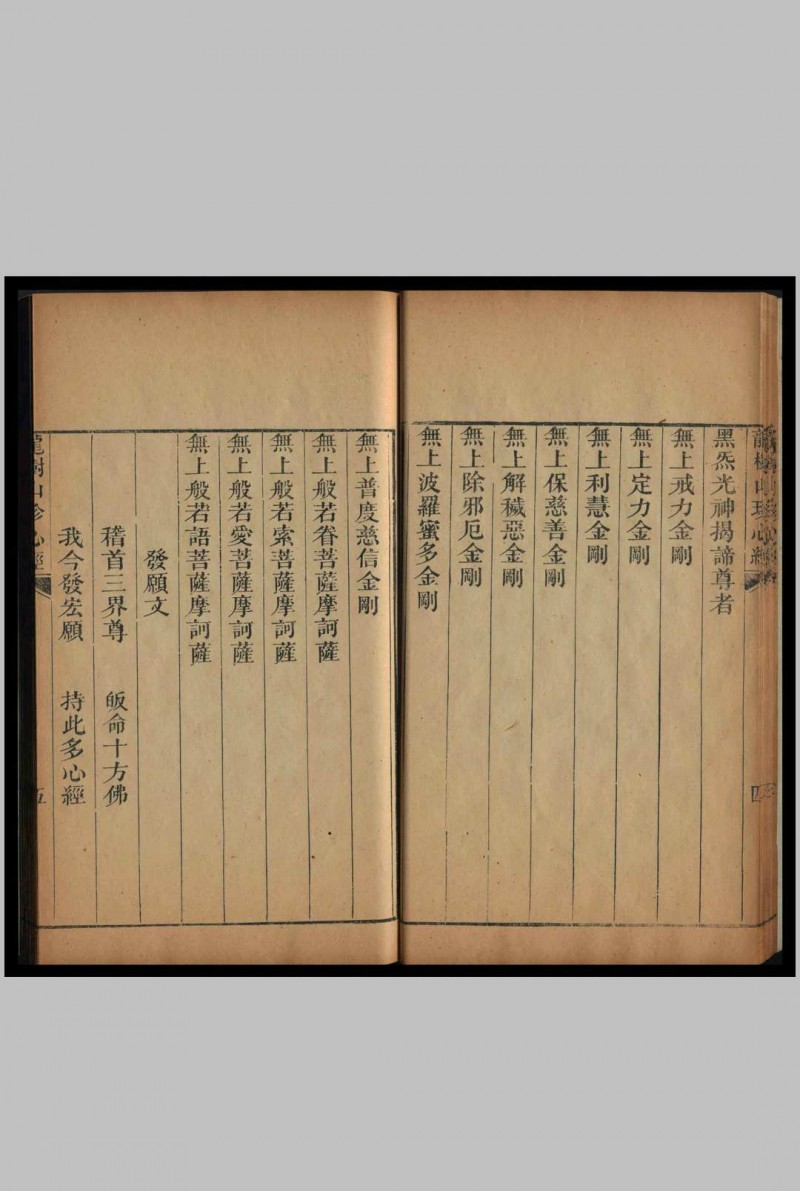 黑炁光神揭諦尊者
無上戒力金剛
無上定力金剛
無上利慧金剛
無上保慈善金剛
無上解穢惡金剛
無上除邪厄金剛
無上波羅蜜多金剛
無上普度慈信金剛
無上般若眷菩薩摩訶薩
無上般若索菩薩摩訶薩
無上般若愛菩薩摩訶薩
無上般若語菩薩摩訶薩
發願文
稽首三界尊　皈命十方佛
我今發宏願　持此多心經
龍樹山珍心經　五